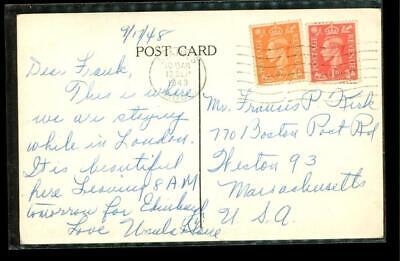 9/11/48
POST CARD
Dear Frank,
This is where
we are staying
while in London.
It is beautiful
here Leaving 8 AM
tomorrow for
Love Ursula
10 15AM
12 SEP
POSTAGE
REVENUE
Mr. Francis P. Kirk
770 Boston Post Rd
Weston 93
Massachusetts
U. S. A.